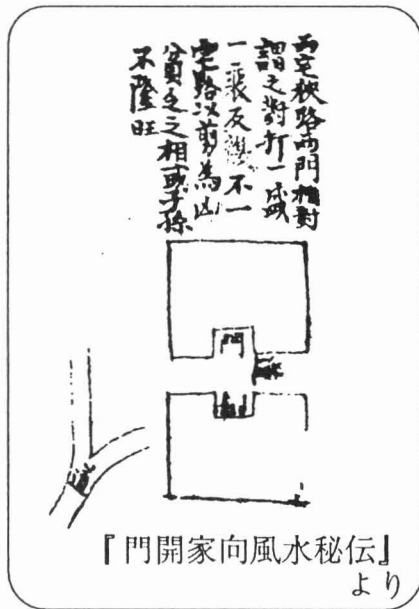 両宅狹路両門相對
謂之對打一盛
一衰反不一
宅路以剪為凶
貧乏之相或子孫
不隆旺
門
路
門
路
『門開家向風水秘伝』
より